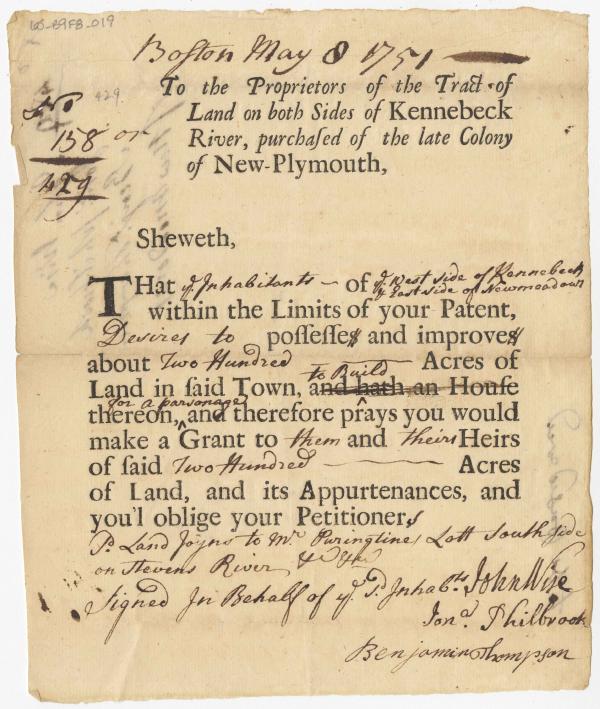 LS-B9FB-019
Boston May 8 1751
To the Proprietors of the Tract of
Land on both Sides of Kennebeck
River, purchaſed of the late Colony
of New-Plymouth,
No 429
158 or
429
Sheweth,
THat ye Inhabitants of ye West side of Kennebeck
ye East side of Newmeadows
within the Limits of your Patent,
Desires to poſſeſſes and improves
about Two Hundred Acres of
to Build
Land in ſaid Town, and hath an Houſe
for a parsonage
thereon, and therefore prays you would
make a Grant to them and theirs Heirs
of ſaid Two Hundred Acres
of Land, and its Appurtenances, and
you'l oblige your Petitioners
Sd. Land Joyns to Mr. Puringtines Lott South side
on Stevens River
Signed In Behalf of ye Sd. Inhabts. John Wise
Jona. Philbrook
Benjamin Thompson